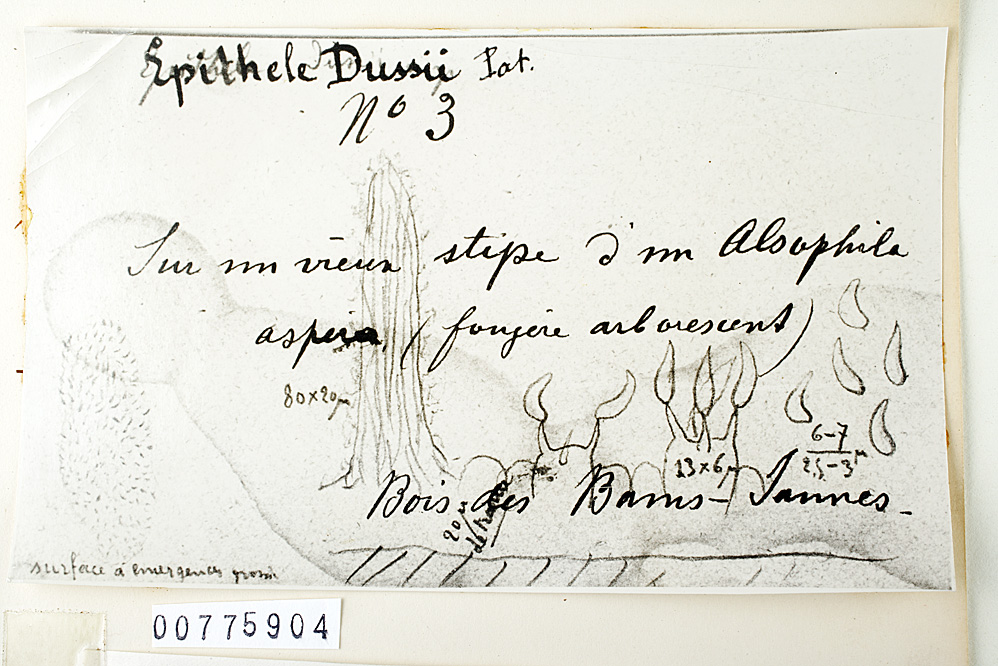 Epithele Dussii Pat.
No 3
Sur un vieux stipe d'un Alsophila
aspera (fougère arborescent)
80×20µ
6-7
2,5-3 µ
23×6µ
Bois des Bains-Jaunes-
20 µ
surface à emergences grossie
00775904